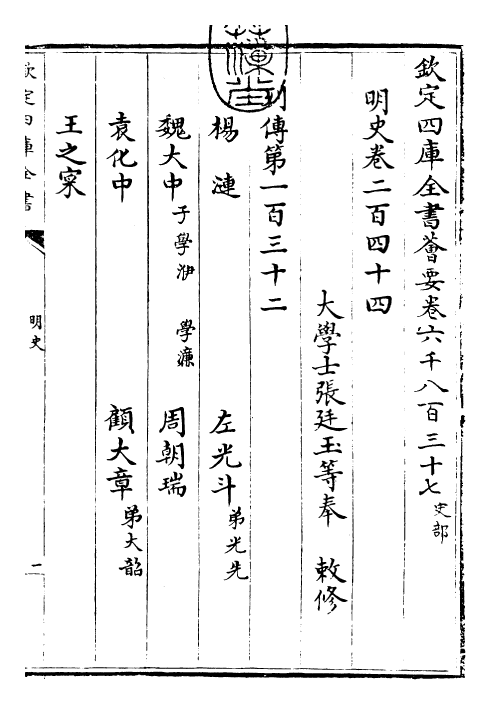 欽定四庫全書薈要卷六千八百三十七 史部
明史卷二百四十四
大學士張廷玉等奉 敕修
列傳第一百三十二
楊漣 左光斗 弟光先
魏大中 子學洢 學濂 周朝瑞
袁化中 顧大章 弟大韶
王之寀
欽定四庫全書
明史
一